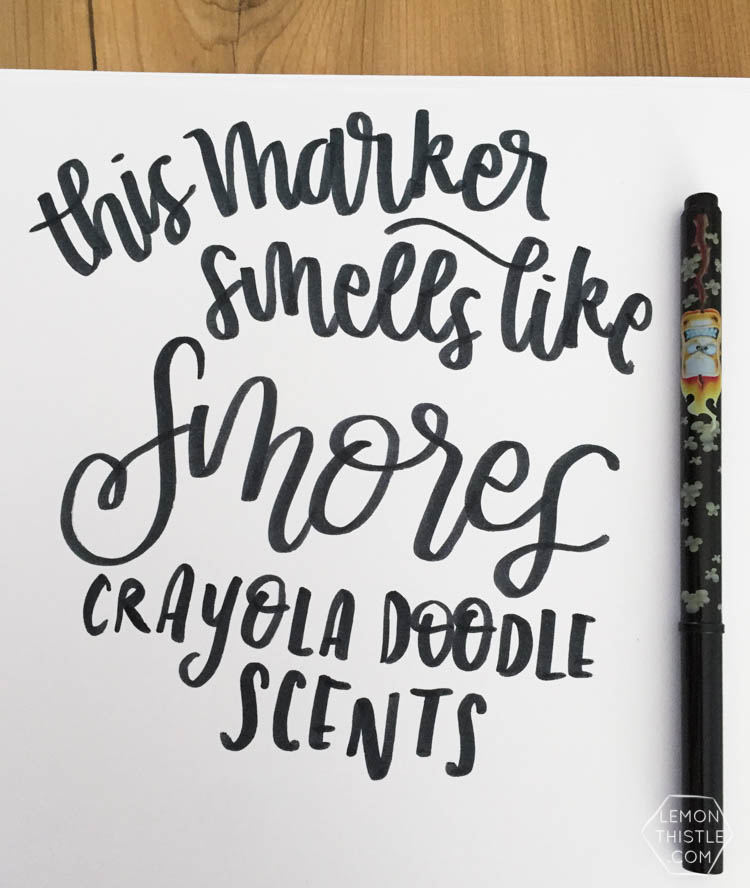 this marker
smells like
smores
CRAYOLA DOODLE
SCENTS
LEMON
THISTLE
.COM